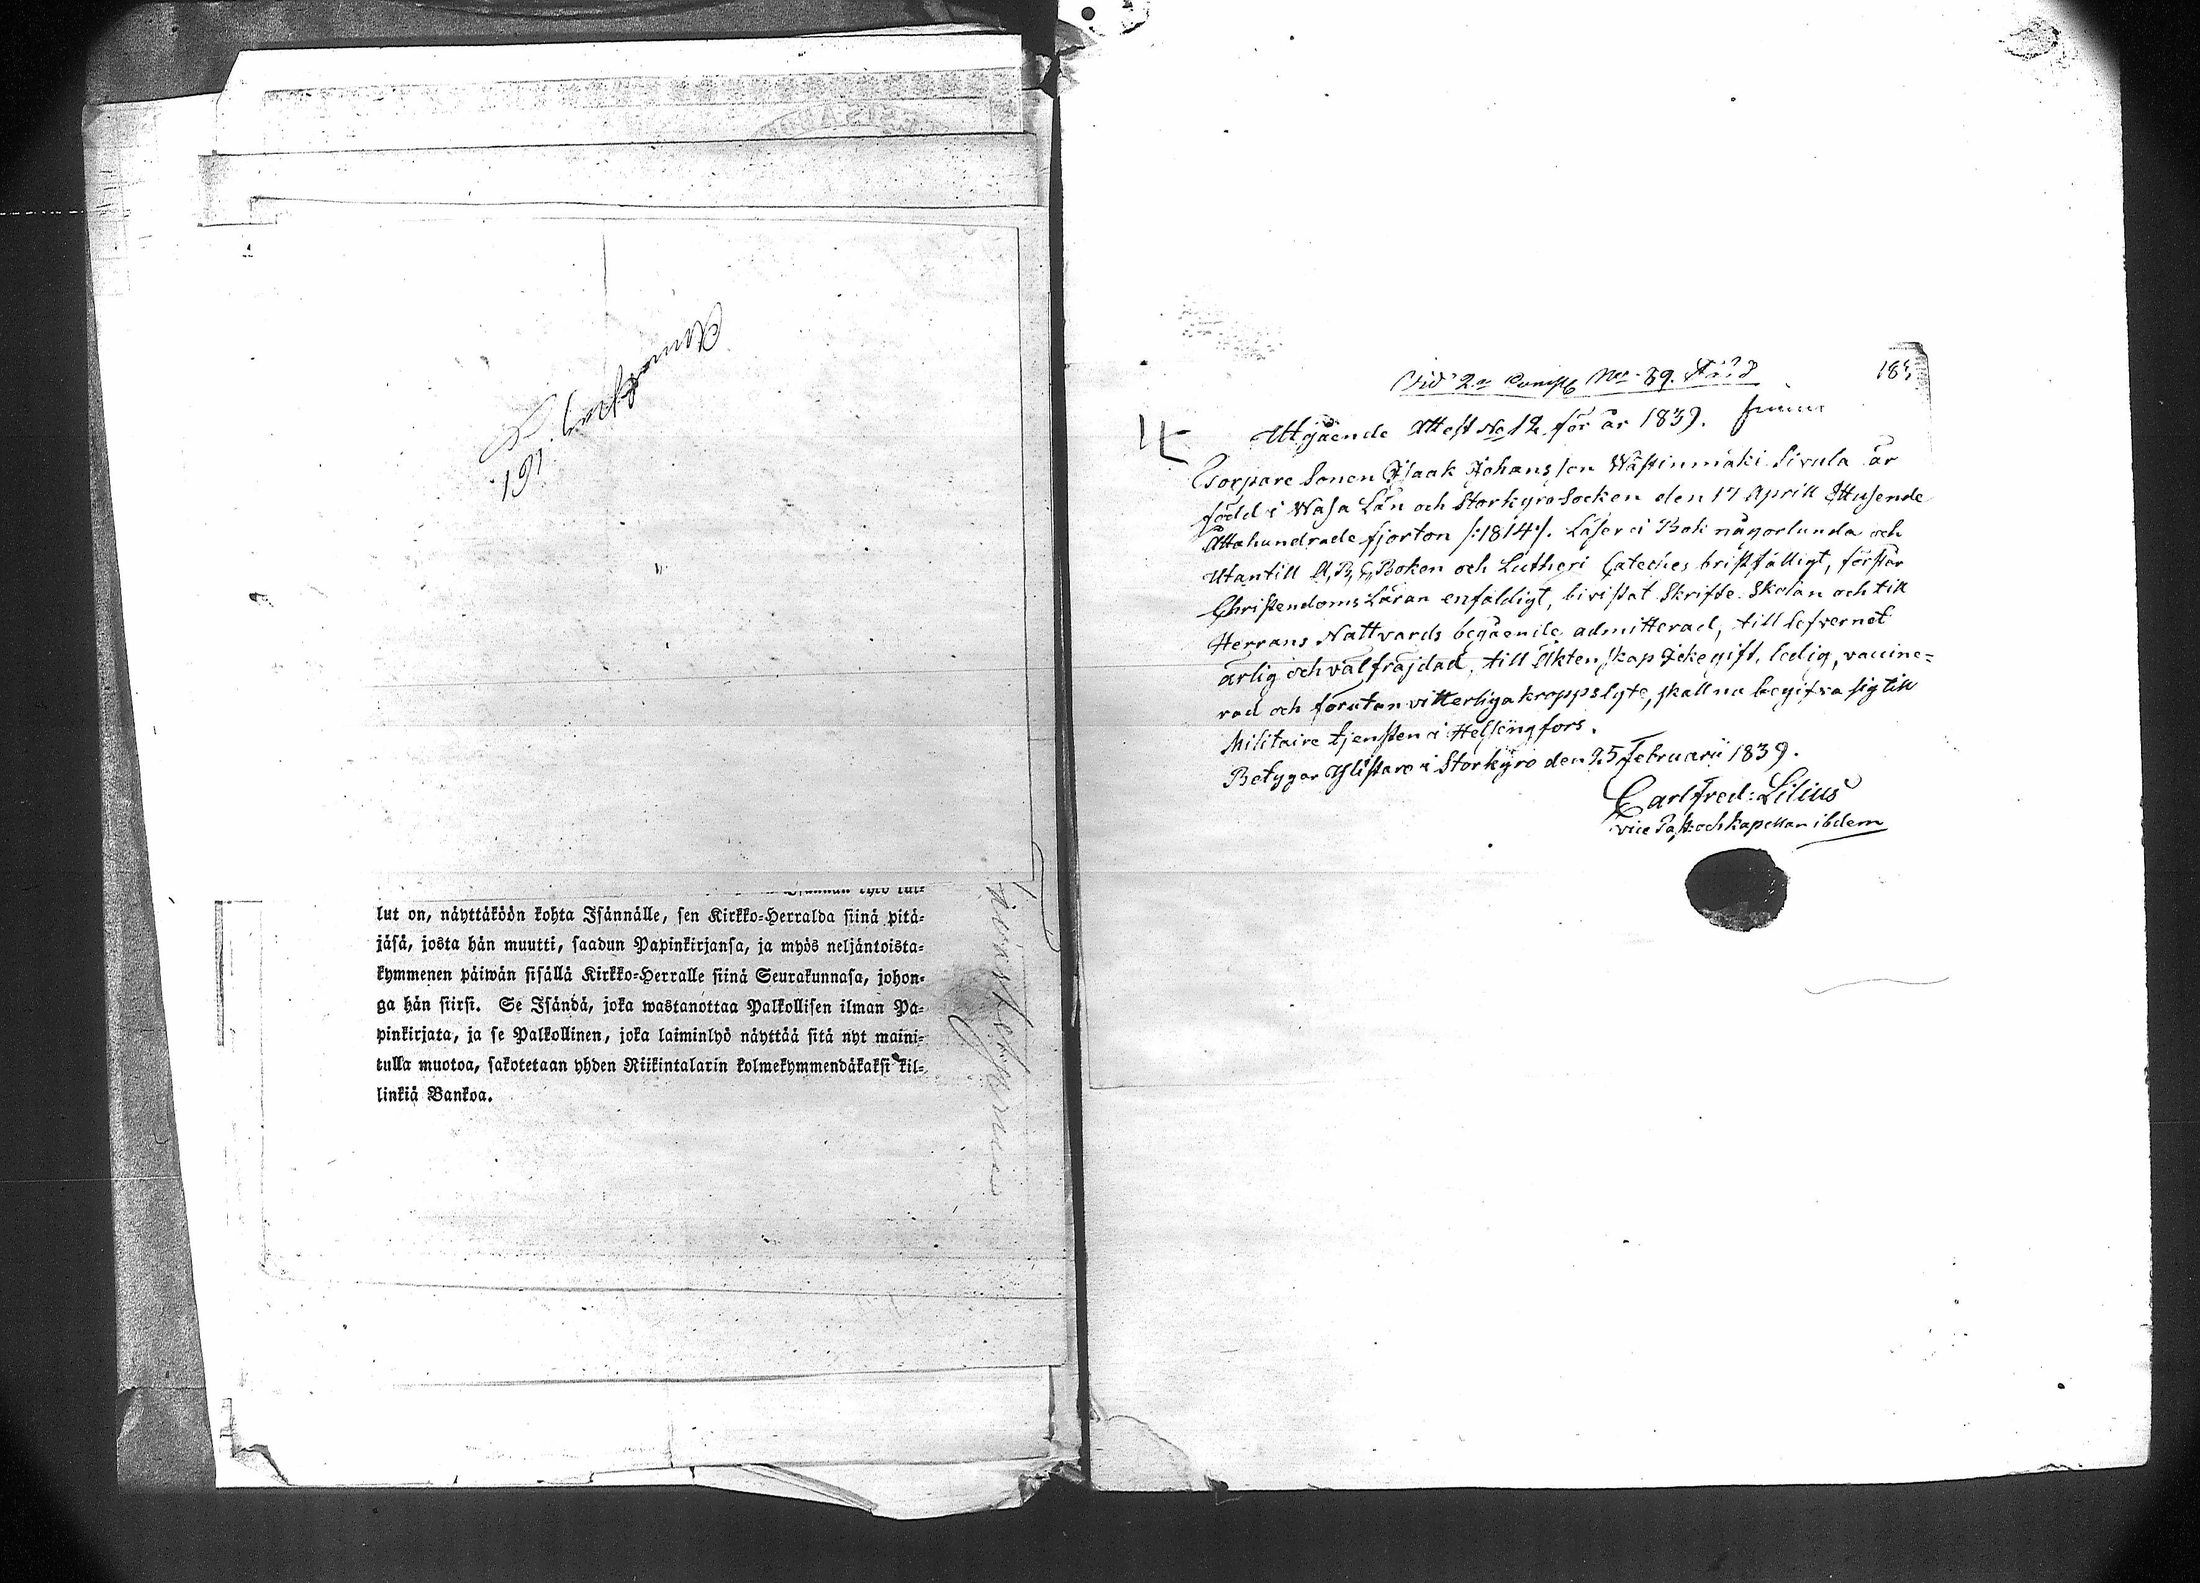 lut on, näyttäköön kohta Isännälle, sen Kirkko-Herralda siinä pitä-
jäsä, josta hän muutti, saadun Papinkirjansa, ja myös neljäntoista-
kymmenen päiwän sisällä Kirkko-Herralle siinä Seurakunnasa, johon-
ga hän siirsi. Se Isändä, joka wastanottaa Palkollisen ilman Pa-
pinkirjata, ja se Palkollinen, joka laiminlyö näyttää sitä nyt maini-
tulla muotoa, sakotetaan yhden Riikintalarin kolmekymmendäkaksi kil-
linkiä Bankoa.
191.
Vid 2:a Comp No 39.
Utgående Attest No 12 för år 1839.
Torpare Sonen Isaak Johansson Wästinmäki Sivula är
född i Wasa Län och Storkyro Socken den 17 Aprill Ettusende
Åttahundrade fjorton /:1814:/. Läser i Bok någorlunda och
Utantill A, B, C, Boken och Lutheri Cateches bristfälligt, förstår
Christendoms Läran enfaldigt, bivistat Skrifte Skolan och till
Herrans Nattvards begående admitterad, till lefvernet
ärlig och välfräjdad, till Äktenskap Icke gift, ledig, vaccine=
rad och förutan vitterliga kroppslyte, skall nu begifva sig till
Militaire tjensten i Helsingfors.
Betygar Ylistaro i Storkyro den 25 Februarii 1839.
Carl Fred: Lilius
vice Past: och kapellan ibdem